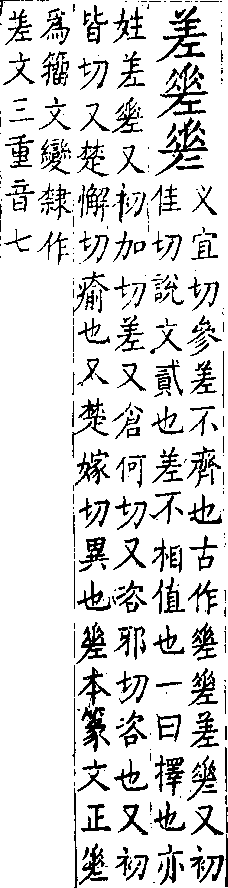 差𢀡𢀩
叉宜切參差不齊也古作𢀡𢀩差𢀩又初
佳切說文貳也差不相值也一曰擇也亦
姓差𢀩又初加切差又倉何切又咨邪切咨也又初
皆切又楚懈切瘉也又楚嫁切異也𢀡本篆文正𢀩
爲籀文變隸作
差文三重音七